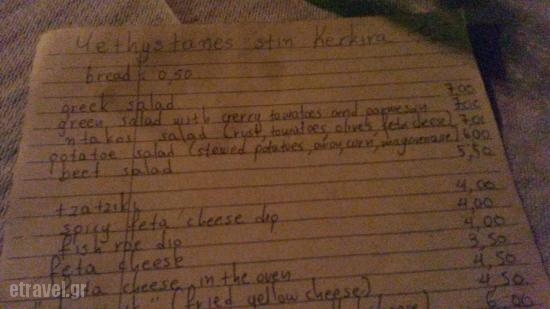 stin Kerkira
bread : 0,50
greek salad 7,00
green salad with cerry tomatoes and parmesan 7,00
ntakos salad (rust, tomatoes, olives, feta cheese) 7,00
potatoe salad (stewed potatoes, corn, mayonnaise) 6,00
beet salad 5,50
tzatziki 4,00
spicy feta cheese dip 4,00
fish roe dip 4,00
feta cheese 3,50
feta cheese in the oven 4,50
" (fried yellow cheese) 4,50
cheese) 6,00
etravel.gr